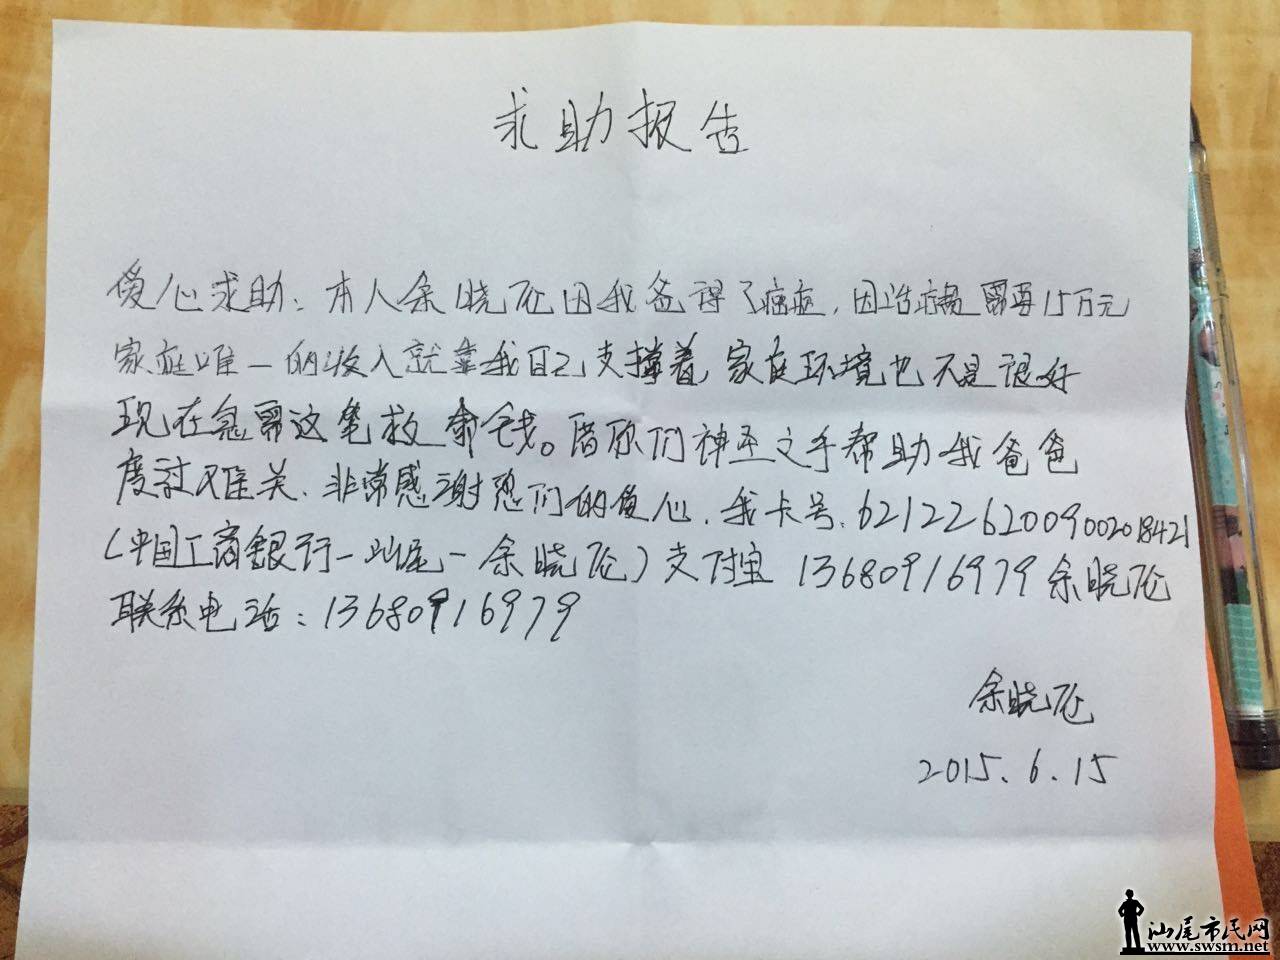 求助报告
爱心求助：本人余晓应因我爸得了癌症，因治病需要15万元
家庭唯一的收入就靠我自己支撑着，家庭环境也不是很好
现在急需这笔救命钱。借你们神圣之手帮助我爸爸
度过难关、非常感谢您们的爱心，我卡号、6212262009002018421
（中国工商银行－汕尾－余晓应）支付宝 13680916979 余晓应
联系电话：13680916979
余晓应
2015.6.15
汕尾市民网
www.swsm.net